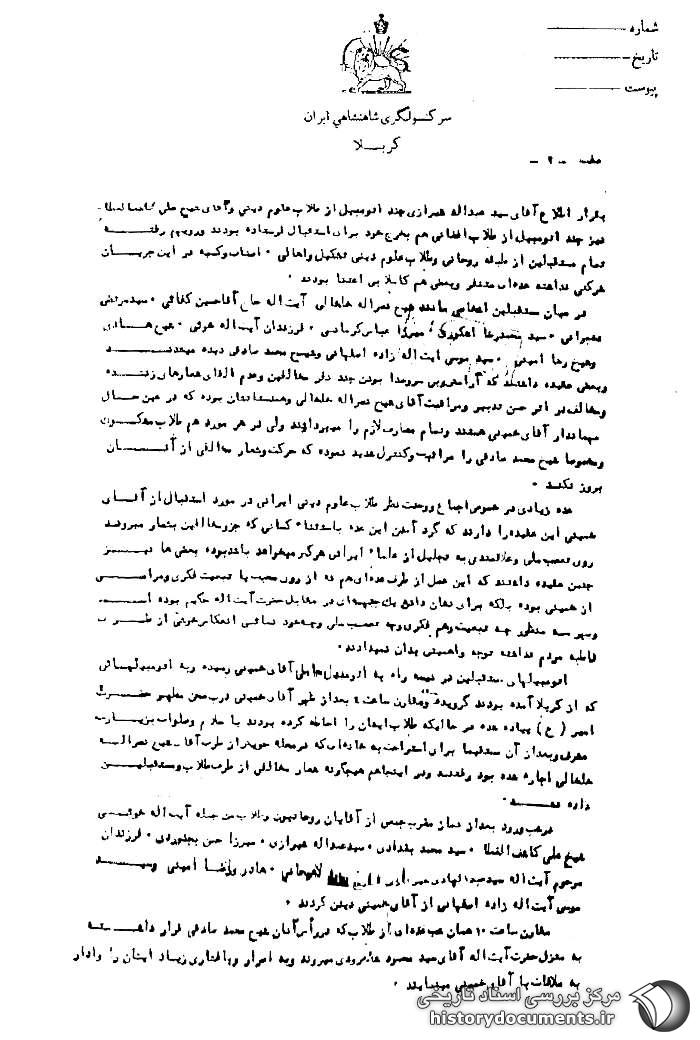 شماره
تاریخ
پیوست
سرکنسولگری شاهنشاهی ایران
کربلا
صفحه -۲-
بقرار اطلاع آقای سید عبداله شیرازی چند اتومبیل از طلاب علوم دینی و آقای شیخ علی کاشف الغطا
نیز چند اتومبیل از طلاب افغانی هم بخرج خود برای استقبال فرستاده بودند و رویهم رفته
تمام مستقبلین از طبقه روحانی و طلاب علوم دینی تشکیل و اهالی ۰ اصناف و کسبه در این جریان
شرکتی نداشته عده‌ای متنفر و بعضی هم کاملا بی اعتنا بودند ۰
در میان مستقبلین اشخاصی مانند شیخ نصراله خلخالی آیت اله حاج آقا حسین کفائی ۰ سید مرتضی
۰ سید محمدرضا اشکوری ۰ میرزا عباس کرمانی ۰ فرزندان آیت اله خوئی ۰ شیخ هادی
و شیخ رضا امینی ۰ سید موسی آیت اله زاده اصفهانی و شیخ محمد صادقی دیده میشدند
و بعضی عقیده داشتند که آرامش و بی سروصدا بودن چند نفر مخالفین و عدم القای شعارهای زننده
و مخالف در اثر حسن تدبیر و مراقبت آقای شیخ نصراله خلخالی و همدستانشان بوده که در عین حال
میهماندار آقای خمینی هستند و تمام مصارف لازم را میپردازند ولی در هر مورد هم طلاب مشکوک
و مخصوصا شیخ محمد صادقی را مراقبت و کنترل شدید نموده که حرکت و شعار مخالفی از آنان
بروز نکند ۰
عده زیادی در خصوص اجماع و وحدت نظر طلاب علوم دینی ایرانی در مورد استقبال از آقای
خمینی این عقیده را دارند که گرد آمدن این عده باستثناء کسانی که جزو مخالفین بشمار میروند
روی تعصب ملی و علاقمندی به تجلیل از علماء ایرانی هرکس میخواهد باشد بوده بعضی ها نیز
چنین عقیده داشتند که این عمل از طرف عده‌ای هم نه از روی محبت یا تبعیت فکری و مرامی
از خمینی بوده بلکه برای نشان دادن یک جبهه‌ای در مقابل حضرت آیت اله حکیم بوده است
و بهر سه منظور چه تبعیت و هم فکری و چه تعصب ملی و چه خود نمائی انعکاس خوشی از طرف
قاطبه مردم نداشته توجه و اهمیتی بدان نمیدادند ۰
اتومبیلهای مستقبلین در نیمه راه به اتومبیل حامل آقای خمینی رسیده و به اتومبیلهائی
که از کربلا آمده بودند گرویده و مقارن ساعت ۴ بعداز ظهر آقای خمینی درب صحن مطهر حضرت
امیر (ع) پیاده شده در حالیکه طلاب ایشان را احاطه کرده بودند با سلام و صلوات بزیارت
مشرف و بعداز آن مستقیما برای استراحت به خانه‌ای که در محله حویش از طرف آقای شیخ نصراله
خلخالی اجاره شده بود رفتند و در اینجا هم هیچگونه شعار مخالفی از طرف طلاب و مستقبلین
داده نشد ۰
در شب ورود بعداز نماز مغرب جمعی از آقایان روحانیون و طلاب من جمله آیت اله خوئی
شیخ علی کاشف الغطا ۰ سید محمد بغدادی ۰ سید عبداله شیرازی ۰ میرزا حسن بجنوردی ۰ فرزندان
مرحوم آیت اله سید عبدالهادی شیرازی ۰ شیخ لاهیجانی ۰ هادی و رضا امینی و سید
موسی آیت اله زاده اصفهانی از آقای خمینی دیدن کردند ۰
مقارن ساعت ۱۰ همان شب عده‌ای از طلاب که در رأس آنان شیخ محمد صادقی قرار داشته
به منزل حضرت آیت اله آقای سید محمود شاهرودی میروند و به اصرار و پافشاری زیاد ایشان را وادار
به ملاقات با آقای خمینی مینمایند ۰
مرکز بررسی اسناد تاریخی
historydocuments.ir